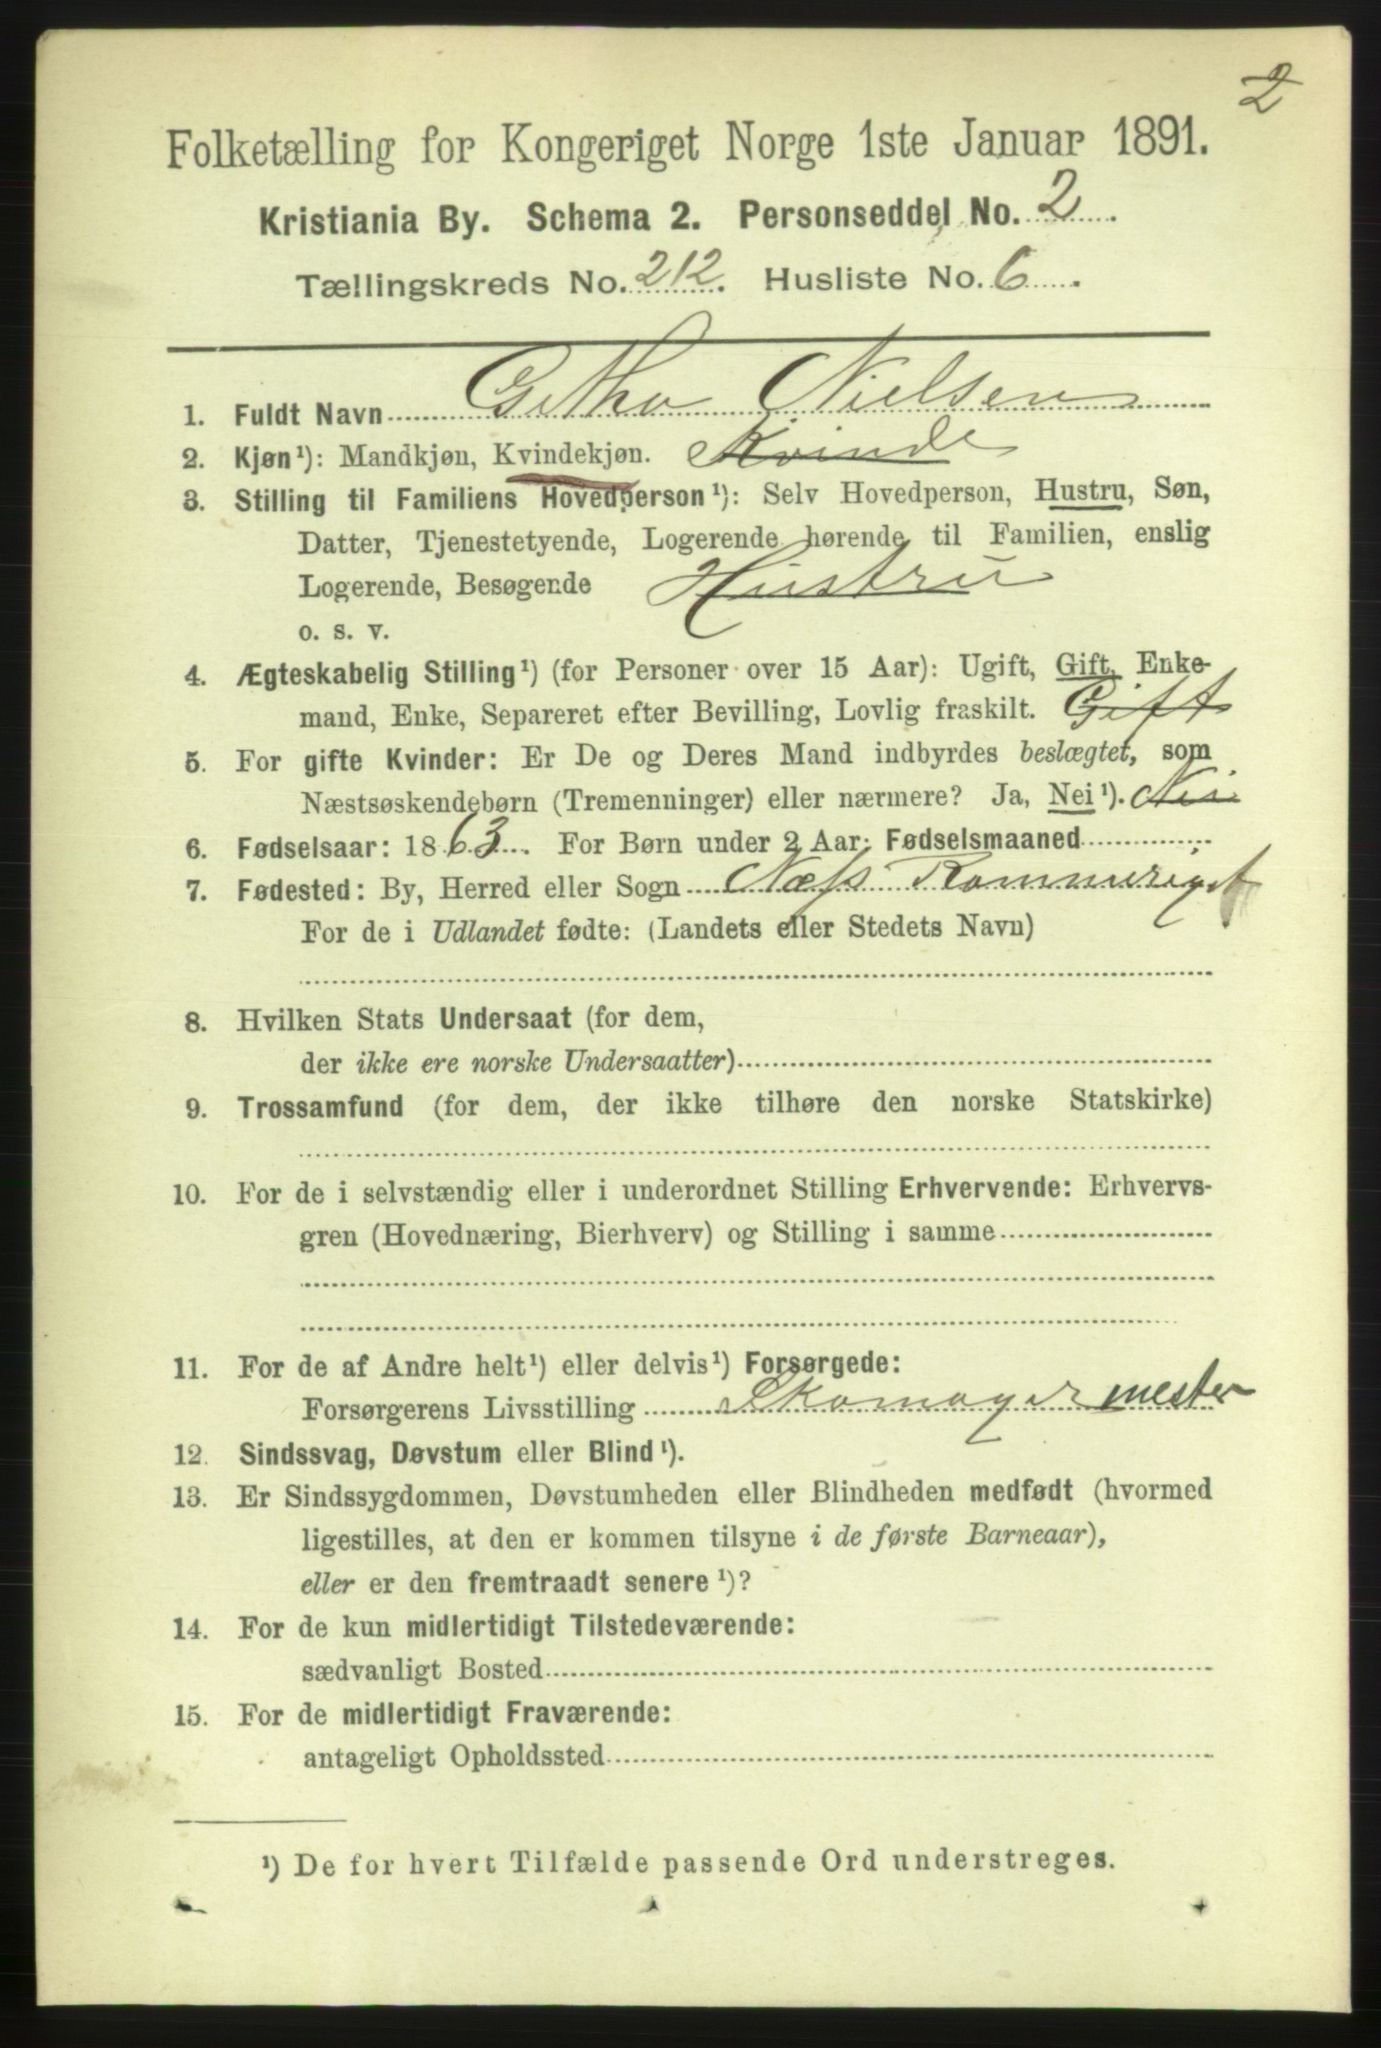 2
Folketælling for Kongeriget Norge 1ste Januar 1891.
Kristiania By. Schema 2. Personseddel No. 2.
Tællingskreds No. 212. Husliste No. 6.
1. Fuldt Navn Githa Nielsen
2. Kjøn¹): Mandkjøn, Kvindekjøn. Kvinde
3. Stilling til Familiens Hovedperson¹): Selv Hovedperson, Hustru, Søn,
Datter, Tjenestetyende, Logerende hørende til Familien, enslig
Logerende, Besøgende Hustru
o. s. v.
4. Ægteskabelig Stilling¹) (for Personer over 15 Aar): Ugift, Gift, Enke-
mand, Enke, Separeret efter Bevilling, Lovlig fraskilt. Gift
5. For gifte Kvinder: Er De og Deres Mand indbyrdes beslægtet, som
Næstsøskendebørn (Tremenninger) eller nærmere? Ja, Nei¹). Nei
6. Fødselsaar: 1863. For Børn under 2 Aar: Fødselsmaaned
7. Fødested: By, Herred eller Sogn Næss Rommeriget
For de i Udlandet fødte: (Landets eller Stedets Navn)
8. Hvilken Stats Undersaat (for dem,
der ikke ere norske Undersaatter)
9. Trossamfund (for dem, der ikke tilhøre den norske Statskirke)
10. For de i selvstændig eller i underordnet Stilling Erhvervende: Erhvervs-
gren (Hovednæring, Bierhverv) og Stilling i samme
11. For de af Andre helt¹) eller delvis¹) Forsørgede:
Forsørgerens Livsstilling Skomager mester
12. Sindssvag, Døvstum eller Blind¹).
13. Er Sindssygdommen, Døvstumheden eller Blindheden medfødt (hvormed
ligestilles, at den er kommen tilsyne i de første Barneaar),
eller er den fremtraadt senere¹)?
14. For de kun midlertidigt Tilstedeværende:
sædvanligt Bosted
15. For de midlertidigt Fraværende:
antageligt Opholdssted
¹) De for hvert Tilfælde passende Ord understreges.